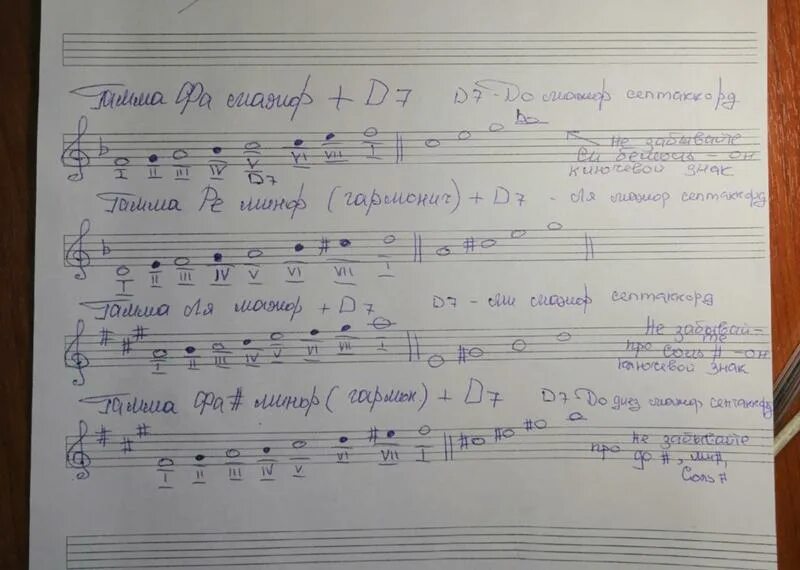 Гамма Фа мажор + D7 D7 - До мажор септаккорд
I II III IV V VI VII I
D7
Не забывайте
Си бемоль - он
ключевой знак
Гамма Ре минор (гармонич) + D7 - Ля мажор септаккорд
I II III IV V VI VII I
Гамма Ля мажор + D7 D7 - Ми мажор септаккорд
I II III IV V VI VII I
Не забывай-
те
про Соль # - он
ключевой знак
Гамма Фа# минор (гармон) + D7 D7 До диез мажор септаккорд
I II III IV V VI VII I
Не забывайте
про до #, ми#,
Соль #